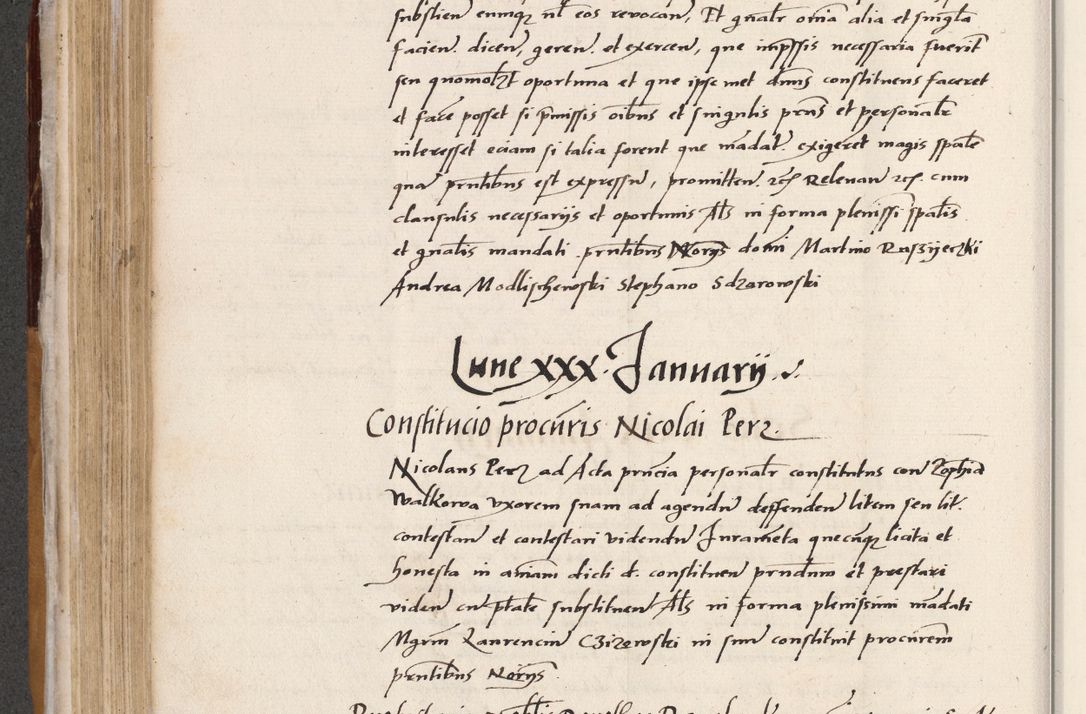 substien eumq nl eos revocan, Et gnalr omnia alia et singla
facien. dicen, geren. et exercen, que impssis necessaria fuerit
seu quomolzt oportuna et que ipse met dnus constituens faceret
et face posset si pmissis oibus et singulis pns et personalr
interesset eciam si talia forent que madat exigeret magis spale
qua pntibus est expressu, promitten. rcz Relevan rcz. cum
clausulis necessarijs et oportunis Als in forma plenissi spalis
et gnalis mandati pntibus Norijs domi Martino Russyeczki
Andrea Modlischewski Stephano Sdzarowski
Lune xxx. Januarij
Constitucio procuris Nicolai Perz.
Nicolaus Perz ad Acta pncia personalr constitutus con Zophia
Walkowa uxorem suam ad agendu deffenden litem seu lit.
contestan et contestari videndu Jurameta quecuq licita et
honesta in aiam dicti d. constituen prndum et prestari
viden cu ptate substituen Als in forma plenissimi madati
Mgrm Laurencium Czizowski in sum constituit procurem
pntibus Norijs